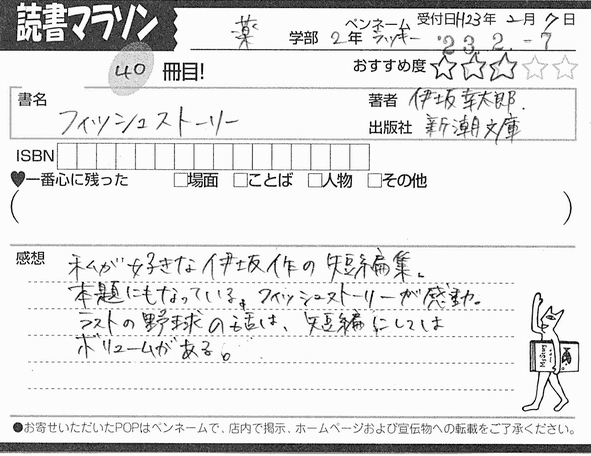 読書マラソン
薬 学部 2年 ペンネーム ラッキー 受付日H23年 2月 7日
'23.2.-7
40 冊目!
おすすめ度 ☆☆☆☆☆
書名 フィッシュストーリー
著者 伊坂幸太郎.
出版社 新潮文庫
ISBN
♥一番心に残った □場面 □ことば □人物 □その他
( )
感想 私が好きな伊坂作の短編集。
本題にもなっている、フィッシュストーリーが感動。
ラストの野球の話は、短編にしては
ボリュームがある。
Mystery
●お寄せいただいたPOPはペンネームで、店内で掲示、ホームページおよび宣伝物への転載をご了承ください。